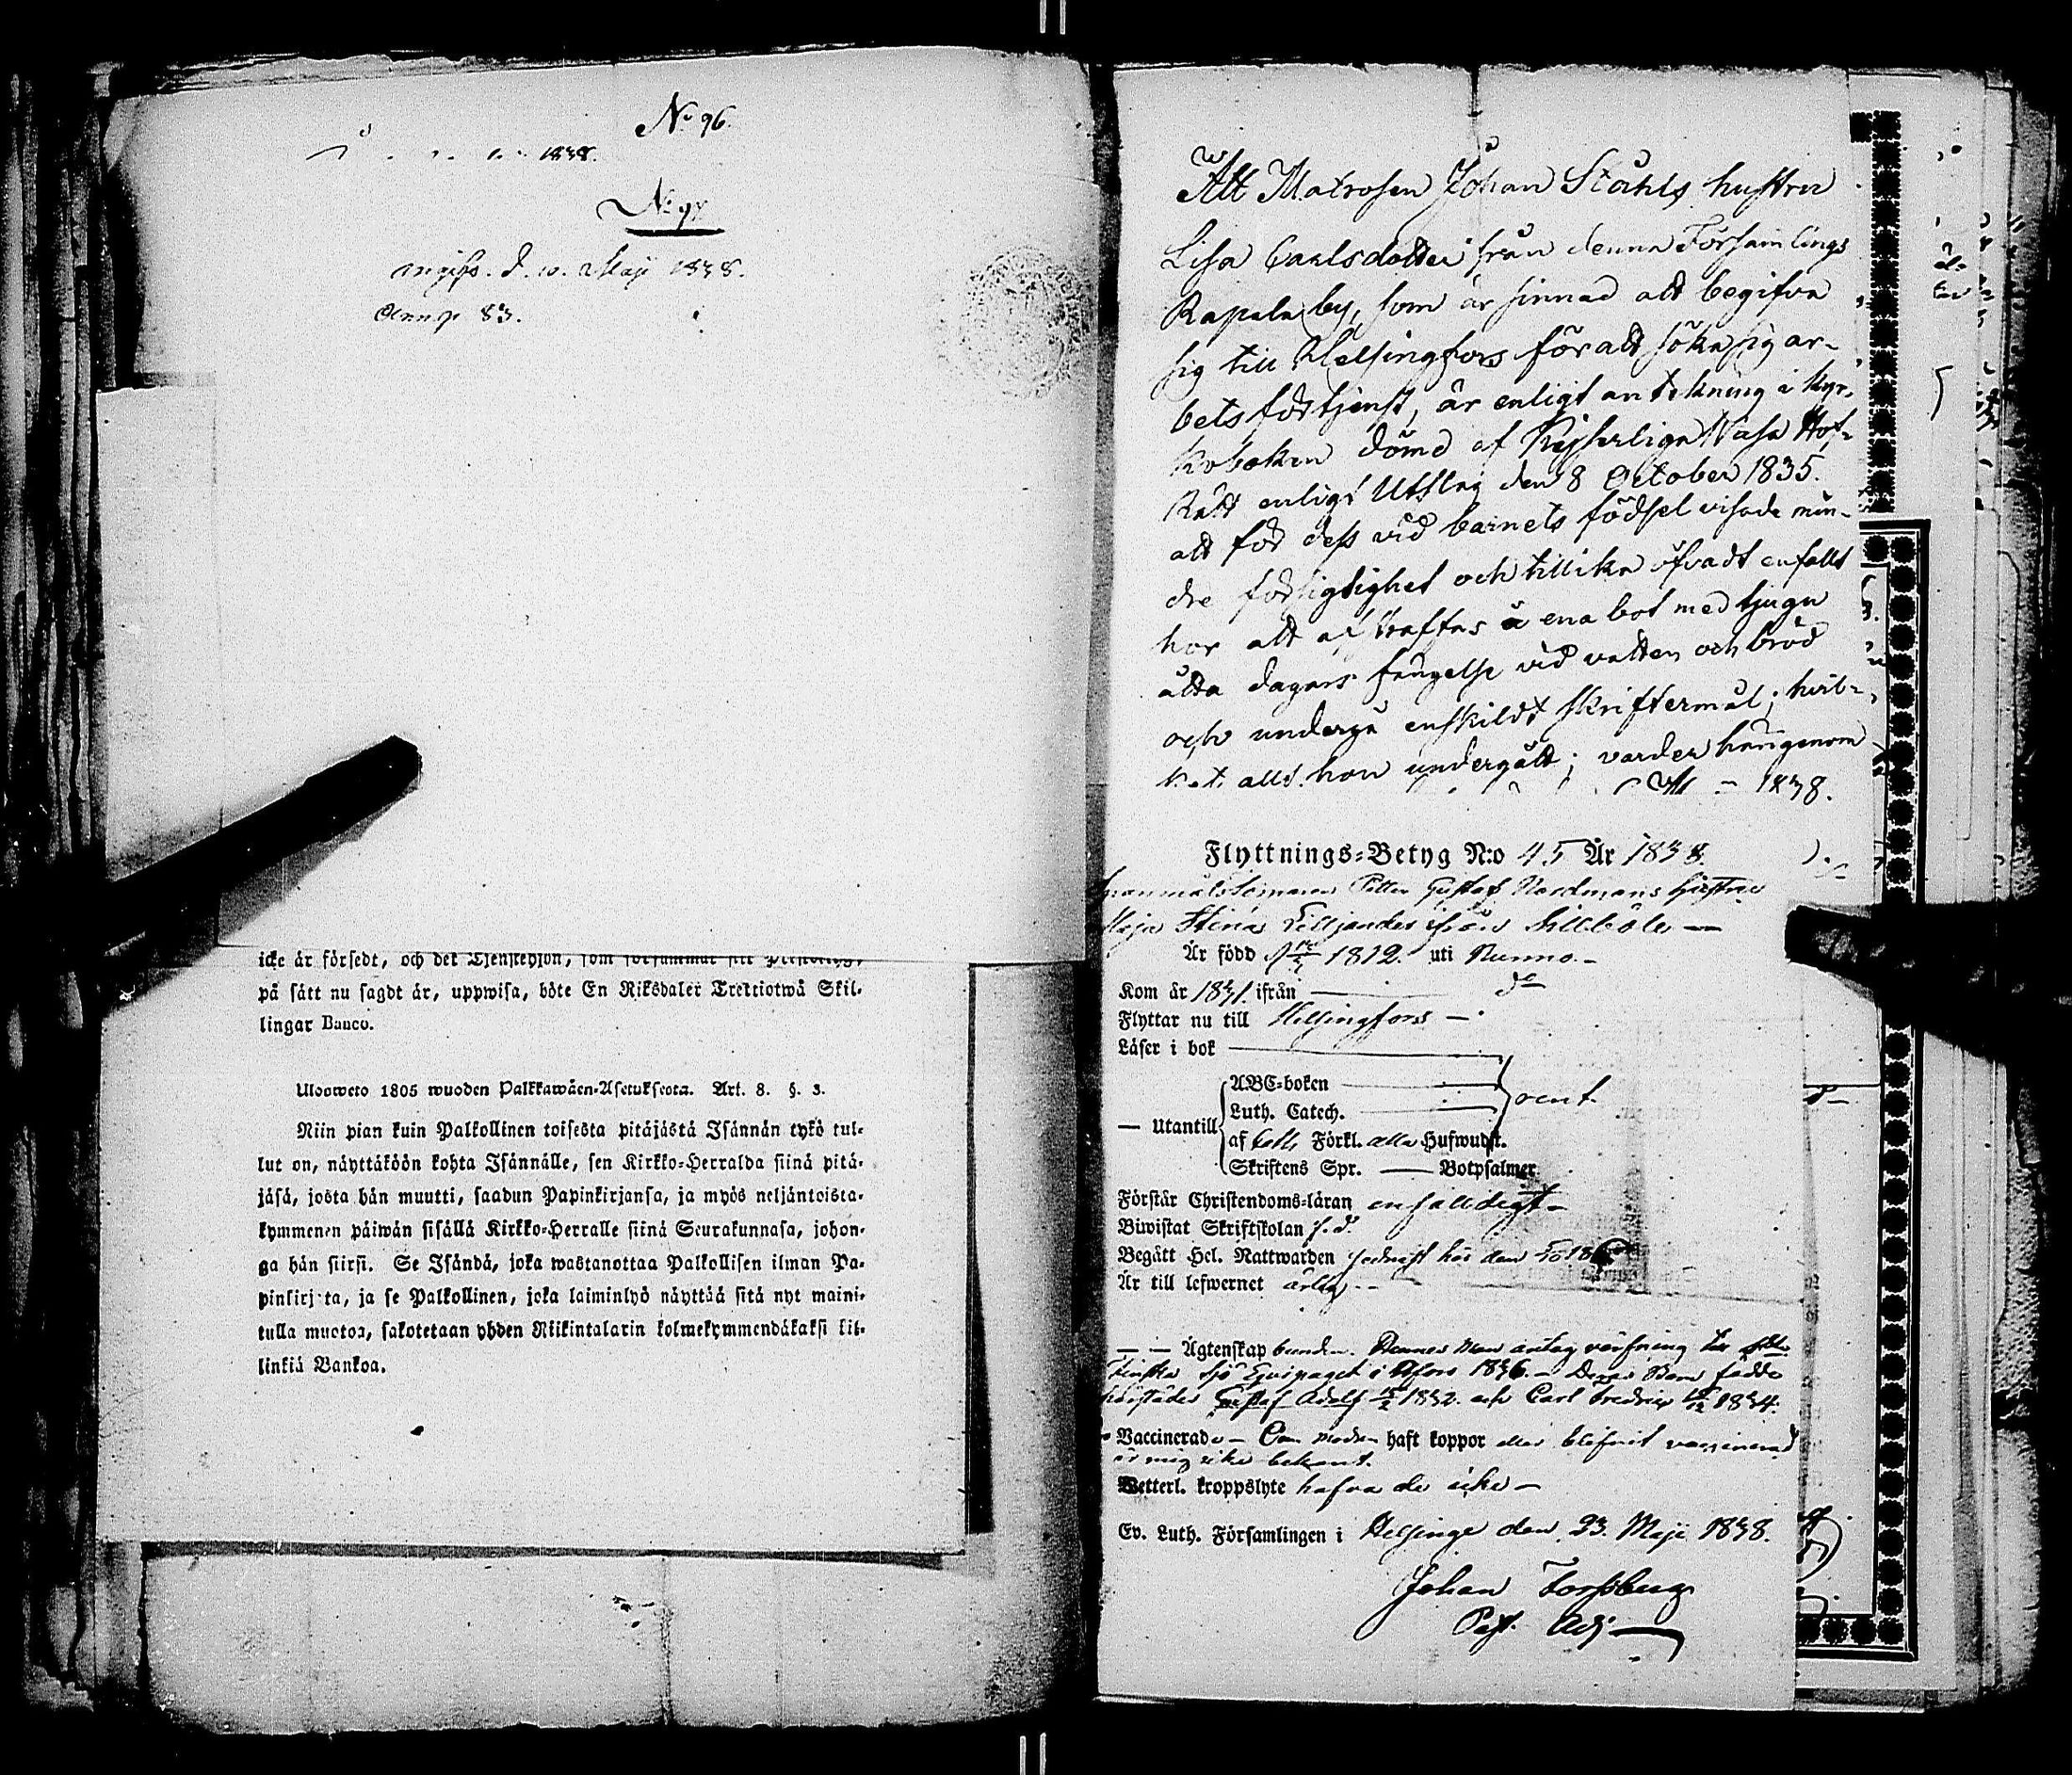 No 96.
1838.
No 97
ingifs. d. 10. Maji 1838.
83.
icke är försedt, och det Tjenstehjon, som försummar sitt
på sätt nu sagdt är, uppwisa, böte En Riksdaler Trettiotwå Skil-
lingar Banco.
Ulosweto 1805 wuoden Palkkawäen-Asetuksesta. Art. 8. §. 3.
Niin pian kuin Palkollinen toisesta pitäjästä Isännän tykö tul-
lut on, näyttäköön kohta Isännälle, sen Kirkko-Herralda siinä pitä-
jäsä, josta hän muutti, saadun Papinkirjansa, ja myös neljäntoista-
kymmenen päiwän sisällä Kirkko-Herralle siinä Seurakunnasa, johon-
ga hän siirsi. Se Isändä, joka wastanottaa Palkollisen ilman Pa-
pinkirjata, ja se Palkollinen, joka laiminlyö näyttää sitä nyt maini-
tulla muotoa, sakotetaan yhden Riikintalarin kolmekymmendäkaksi kil-
linkiä Bankoa.
Att Matrosen Johan Ståhls hustru
Lisa Carlsdotter från denna Församlings
Rapala by, som är sinnad att begifva
sig till Helsingfors för att söka sig ar-
betsförtjenst, är enligt antekning i kyr-
koboken dömd af Kejserliga Wasa Hof-
Rätt enligt Utslag den 8 October 1835.
att för dess vid barnets födsel visade min-
dre försigtighet och tillika öfvadt enfalt
hor att afstraffas å ena bot med tjugu
åtta dagars fängelse vid vatten och bröd
och undergå enskildt skriftermål; hvil-
ket allt hon undergått; varder härigenom
1838.
Flyttnings-Betyg N:o 45 År 1838.
Petter Gustaf Nordmans hustru
Maja Stina Lilljander ifrån Sillböle —
Är född 1812. uti Nummo. —
Kom år 1831. ifrån — do
Flyttar nu till Helsingfors —
Läser i bok
— Utantill
ABC-boken
Luth. Catech.
af Förkl. alla Hufwudst.
rent
Skriftens Spr. — Botpsalmer
Förstår Christendoms-läran enfaldigt —
Biwistat Skriftskolan f. d.
Begått Hel. Nattwarden sednast här den
Är till lefwernet ärlig —
— — Ägtenskap bunden. Hennes Man antog värfning
Sjö Equipaget i Hfors 1836. — Deras Barn födde
härstädes Gustaf Adolf 1832. och Carl Fredric 1834.
Vaccinerade — Om modren haft koppor eller blifvit vaccinerad
är mig icke bekant.
Wetterl. kroppslyte hafva de icke —
Ev. Luth. Församlingen i Helsinge den 23. Maji 1838.
Johan Forssberg
Past. Adj.